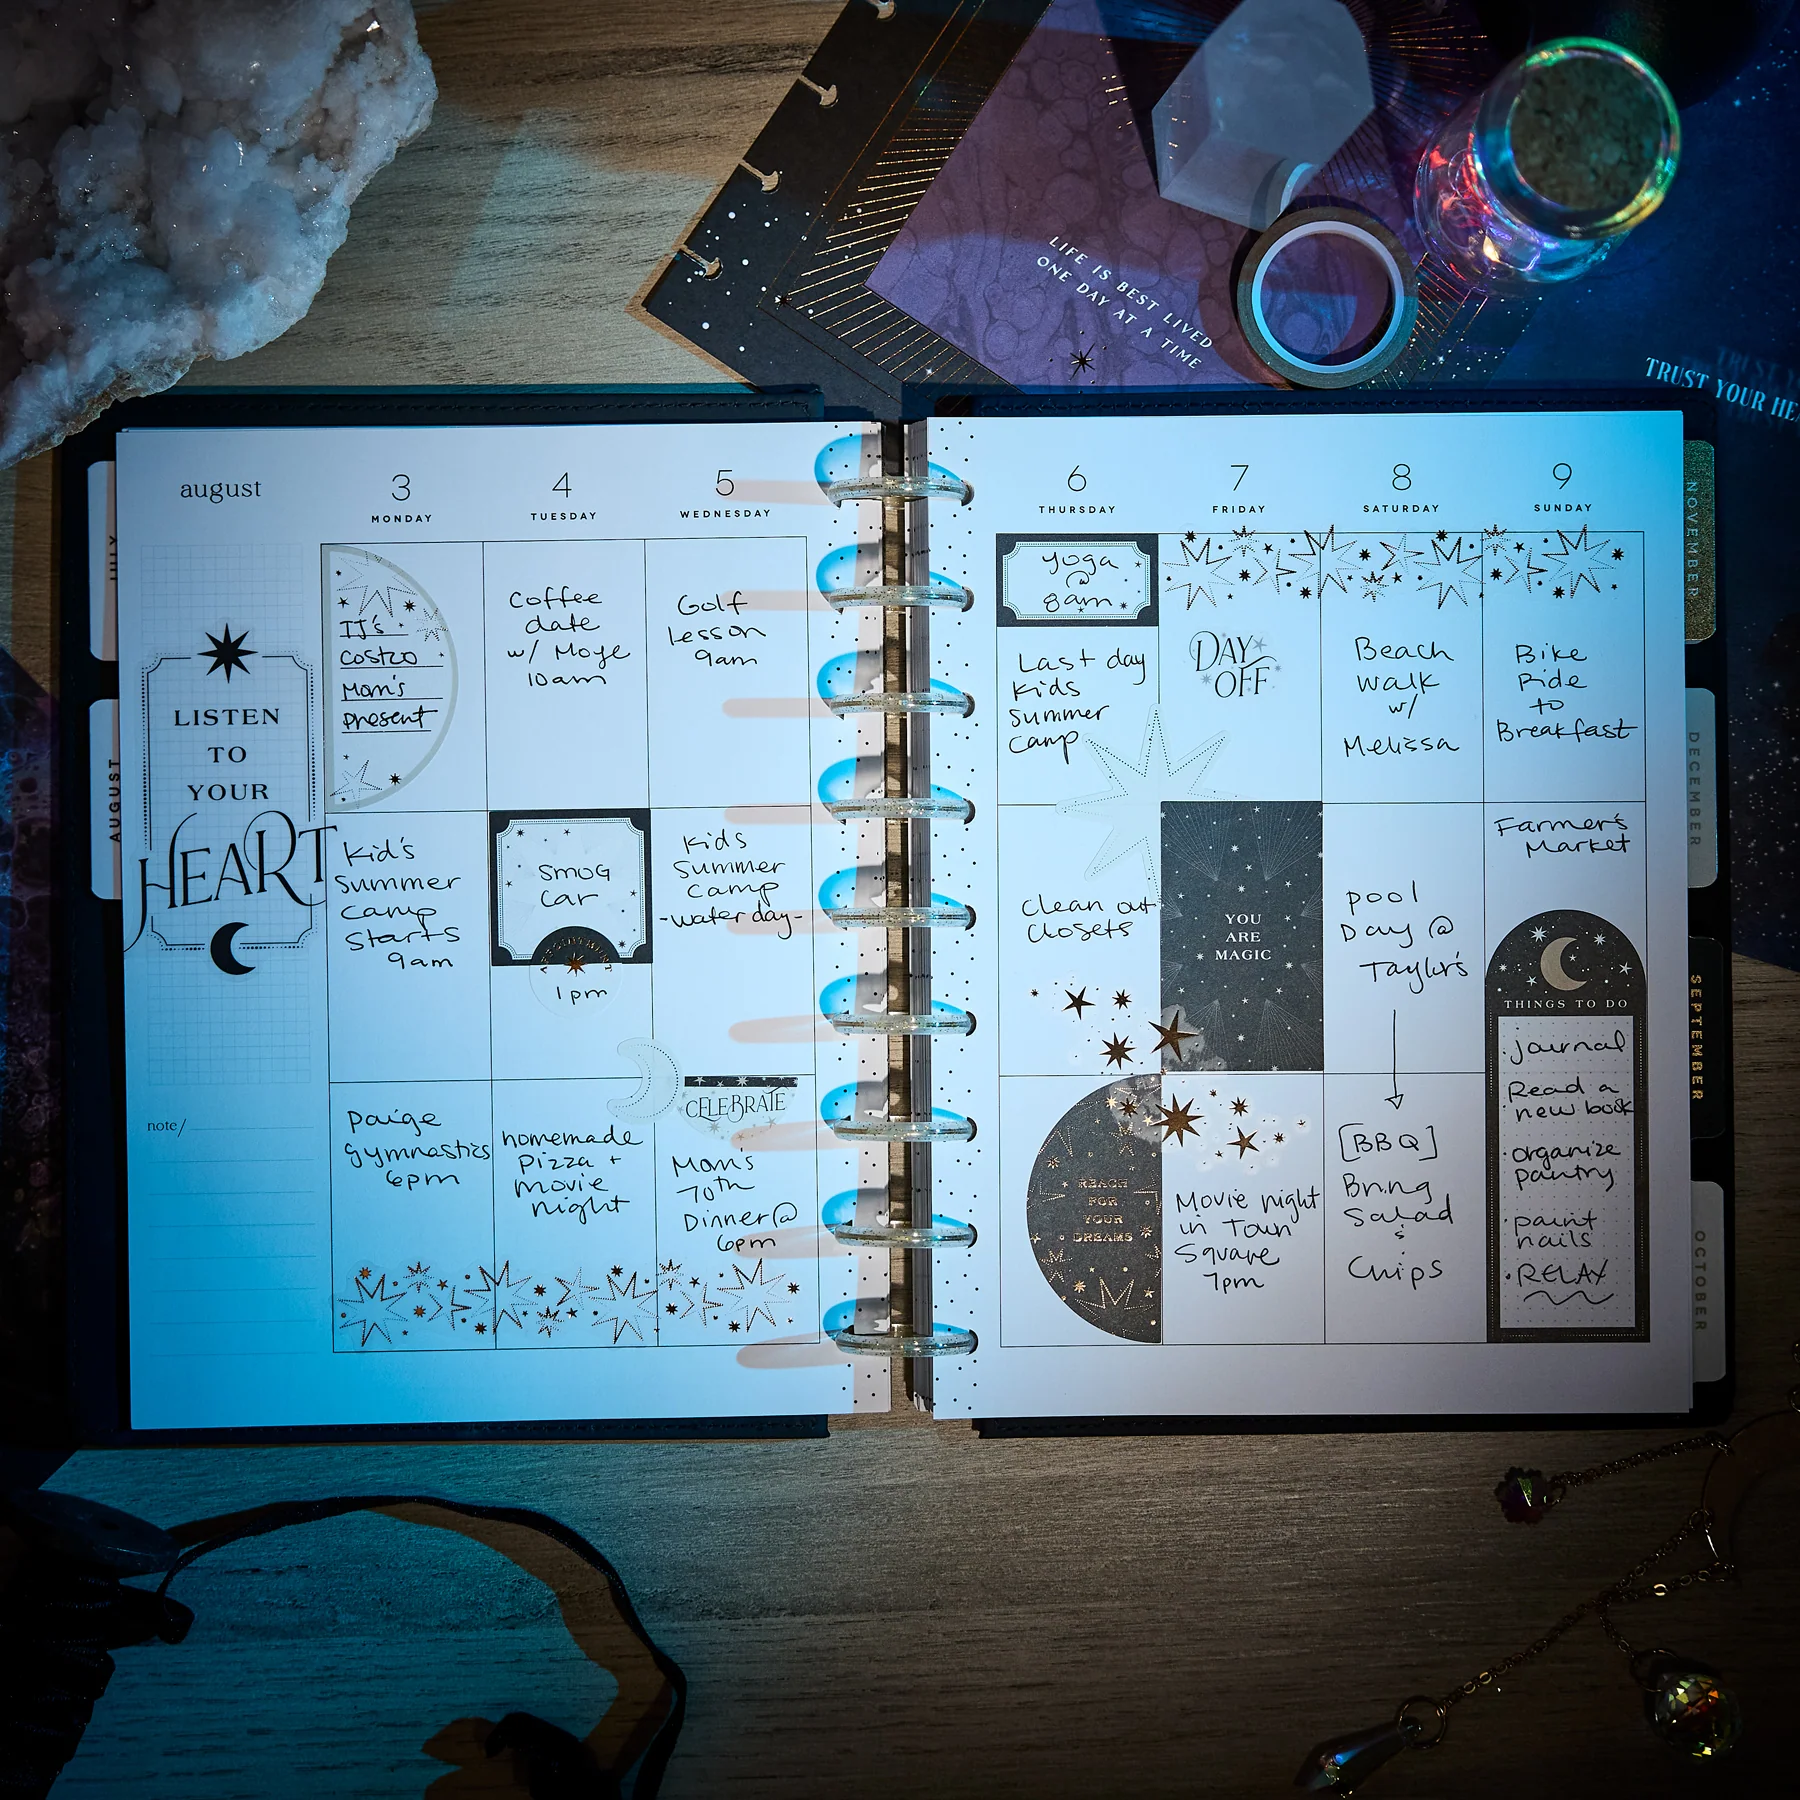 LIFE IS BEST LIVED
ONE DAY AT A TIME
TRUST YOUR HE
august
3
MONDAY
4
TUESDAY
5
WEDNESDAY
6
THURSDAY
7
FRIDAY
8
SATURDAY
9
SUNDAY
JULY
AUGUST
NOVEMBER
DECEMBER
SEPTEMBER
OCTOBER
LISTEN
TO
YOUR
HEART
note/
TJ's
Costco
Mom's
present
Kid's
Summer
Camp
Starts
9am
Paige
Gymnastics
6pm
Coffee
date
w/ Moye
10am
SMOG
Car
APPOINTMENT
1pm
homemade
Pizza +
movie
night
Golf
lesson
9am
Kids
Summer
Camp
-water day-
CELEBRATE
Mom's
70th
Dinner @
6pm
yoga
@
8am
Last day
Kids
Summer
Camp
Clean out
Closets
REACH
FOR
YOUR
DREAMS
DAY
OFF
YOU
ARE
MAGIC
Movie night
in Town
Square
7pm
Beach
Walk
w/
Melissa
Pool
Day @
Taylor's
[BBQ]
Bring
Salad
&
Chips
Bike
Ride
to
Breakfast
Farmer's
Market
THINGS TO DO
· journal
· Read a
new book
· organize
pantry
· paint
nails
· RELAX